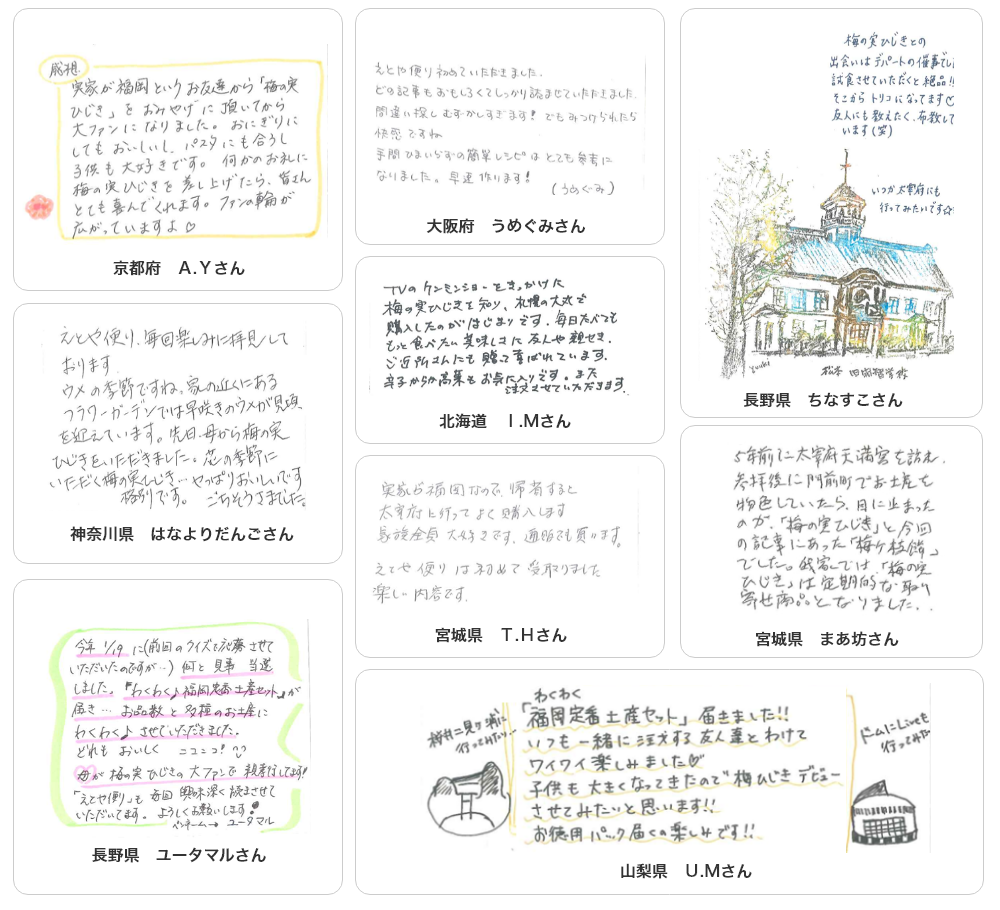 感想
実家が福岡というお友達から「梅の実
ひじき」をおみやげに頂いてから
大ファンになりました。おにぎりに
してもおいしいし、パスタにも合うし
子供も大好きです。何かのお礼に
梅の実ひじきを差し上げたら、皆さん
とても喜んでくれます。ファンの輪が
広がっていますよ♡
京都府　A.Yさん
えとや便り初めていただきました。
どの記事もおもしろくてしっかり読ませていただきました。
間違い探しむずかしすぎます! でもみつけられたら
快感ですね
手間ひまいらずの簡単レシピはとても参考に
なりました。早速作ります!
(うめぐみ)
大阪府　うめぐみさん
梅の実ひじきとの
出会いはデパートの催事でし
試食させていただくと絶品!!
そこからトリコになってます♡
友人にも教えたく、布教して
います(笑)
いつか太宰府にも
行ってみたいです☆
Yuuki
松本 旧開智学校
長野県　ちなすこさん
えとや便り、毎回楽しみに拝見して
おります。
ウメの季節ですね。家の近くにある
フラワーガーデンでは早咲きのウメが見頃
を迎えています。先日、母から梅の実
ひじきをいただきました。この季節に
いただく梅の実ひじき…やっぱりおいしいです
格別です。 ごちそうさまでした。
神奈川県　はなよりだんごさん
TVのケンミンショーをきっかけに
梅の実ひじきを知り、札幌の大丸で
購入したのがはじまりです。毎日たべても
もっと食べたい美味しさに友人や親せき、
ご近所さんにも贈って喜ばれています。
辛子からか高菜もお気に入りです。また
注文させていただきます。
北海道　I.Mさん
実家が福岡なので、帰省すると
太宰府に行ってよく購入します
家族全員大好きです。通販でも買います。
えとや便りは初めて受取りました
楽しい内容です。
宮城県　T.Hさん
5年前に太宰府天満宮を訪れ、
参拝後に門前町でお土産を
物色していたら、目に止まった
のが、「梅の実ひじき」と今回
の記事にあった「梅ヶ枝餅」
でした。我家では、「梅の実
ひじき」は定期的な取り
寄せ商品となりました..
宮城県　まあ坊さん
今年 1/19 に(前回のクイズを応募させて
いただいたのですが…) 何と 見事 当選
しました。『わくわく♪福岡定番土産セット』が
届き… お品数と多種のお土産に
わくわく♪させていただきました。
どれも おいしく ニコニコ!
母が梅の実ひじきの大ファンで 親孝行してます!
「えとや便り」も毎回興味深く読まさせて
いただいてます。よろしくお願いします!
ペンネーム→ ユータマル
長野県　ユータマルさん
わくわく
「福岡定番土産セット」届きました!!
いつも一緒に注文する友人達とわけて
ワイワイ楽しみました♡
子供も大きくなってきたので梅ひじきデビュー
させてみたいと思います!!
お徳用パック届くの楽しみです!!
行ってみたい…
ドームにLiveも
行ってみた
山梨県　U.Mさん